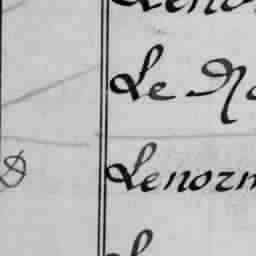 Le No
D Lenorm